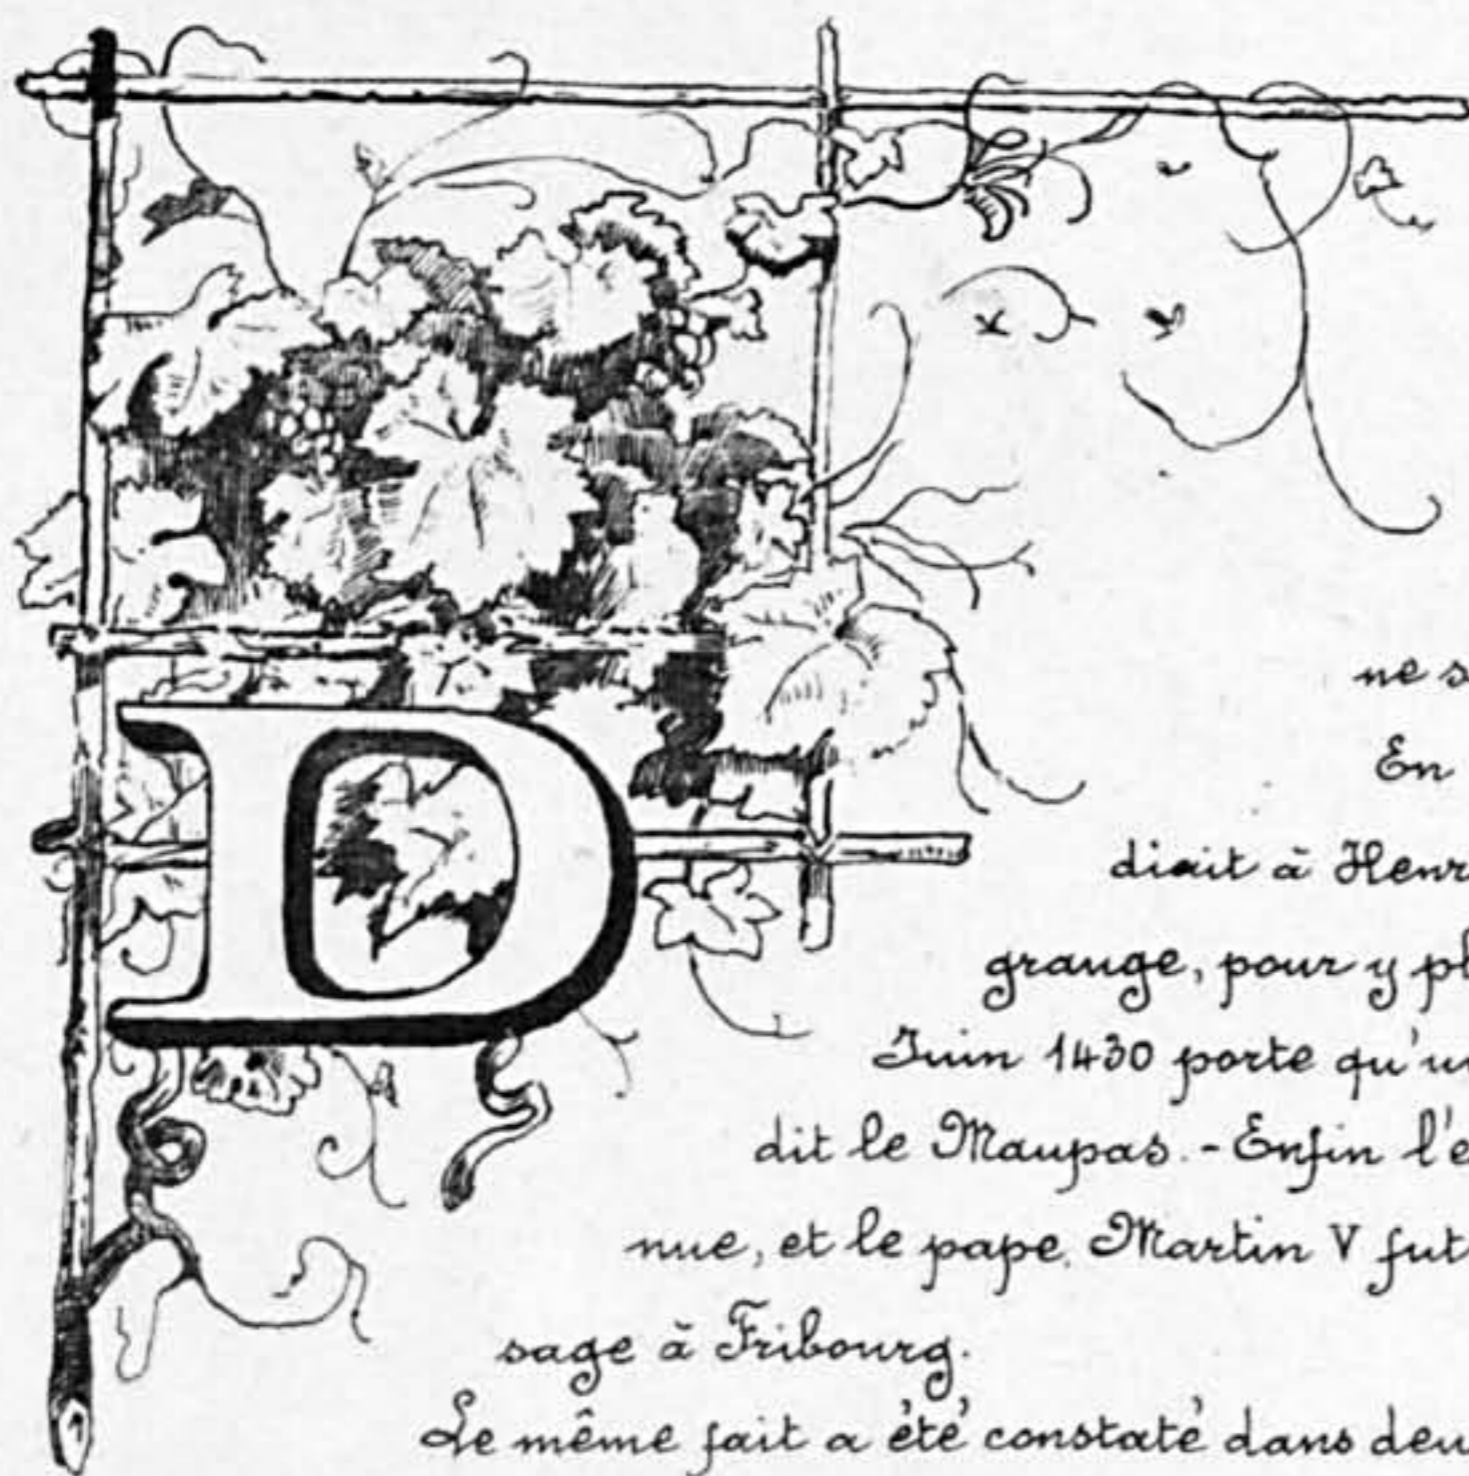 D
ne s
En
disait à Henr
grange, pour y pl
Juin 1430 porte qu'u
dit le Maupas. - Enfin l'e
nue, et le pape Martin V fut
sage à Fribourg.
Le même fait a été constaté dans deu